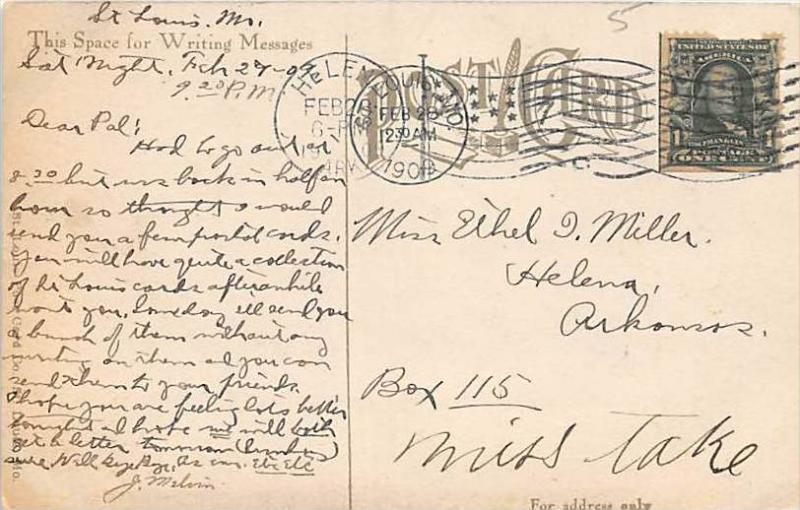 St Louis. Mo.
This Space for Writing Messages
Sat Night, Feb 27-09
9 20 P.M
Dear Pal:
Had to go out at
8.30 but was back in half an
hour so thought I would
send you a few postal cards.
you will have quite a collection
of St Louis cards after awhile
wont you. Someday ill send you
a bunch of them without any
writing on them so you can
send them to your friends.
I hope you are feeling lots better
tonight and hope we will both
get a letter tomorrow (Sunday)
sure. Well Bye Bye, As ever. Etc Etc
J. Melvin
POST CARD
HELENA
FEB 28
6-P
ARK
ST. LOUIS, MO.
FEB 28
1230 AM
1909
5
UNITED STATES OF
AMERICA
1
FRANKLIN
ONE CENT
Miss Ethel I. Miller.
Helena,
Arkansas.
Box 115
Miss Take
For address only